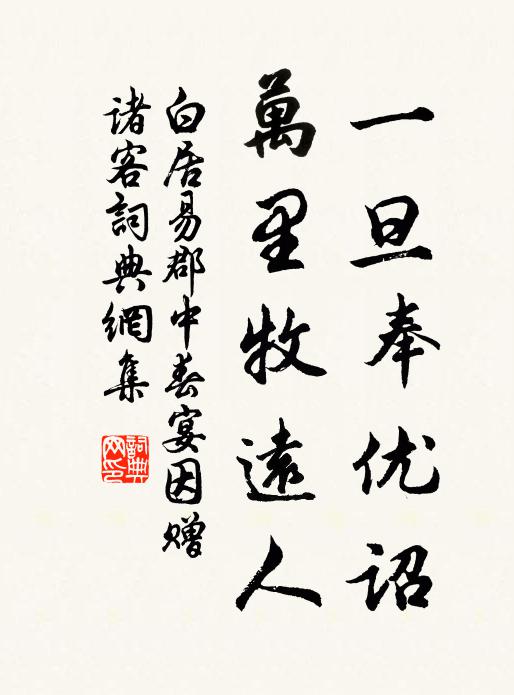 一旦奉优诏
萬里牧遠人
白居易郡中春宴因赠
诸客詞典網集
詞典网印